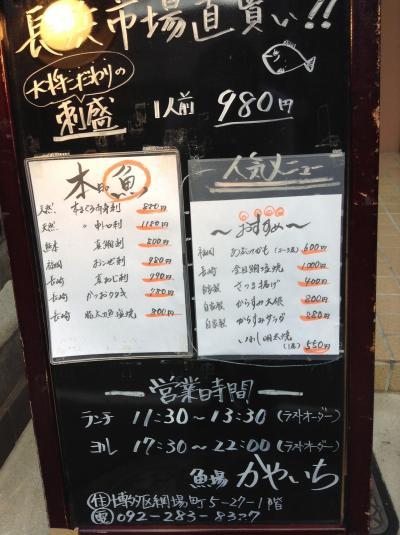 長浜市場直買い!!
大将こだわりの
刺盛 1人前 980円
本日の魚
天然 まぐろ赤身刺 880円
天然 〃 中トロ刺 1180円
熊本 真鯛刺 800円
福岡 980円
長崎 真あじ刺 990円
長崎 かつおタタキ 780円
長崎 脂太刀魚塩焼 800円
人気メニュー
〜おすすめ〜
福岡 600円
長崎 金目鯛塩焼 1,000円
自家製 さつま揚げ 400円
自家製 からすみ大根 800円
自家製 からすみサラダ 880円
いわし明太焼
(1尾) 550円
営業時間
ランチ 11:30〜13:30(ラストオーダー)
ヨル 17:30〜22:00(ラストオーダー)
魚場 かやいち
住 博多区網場町5-27-1階
電 092-283-8327